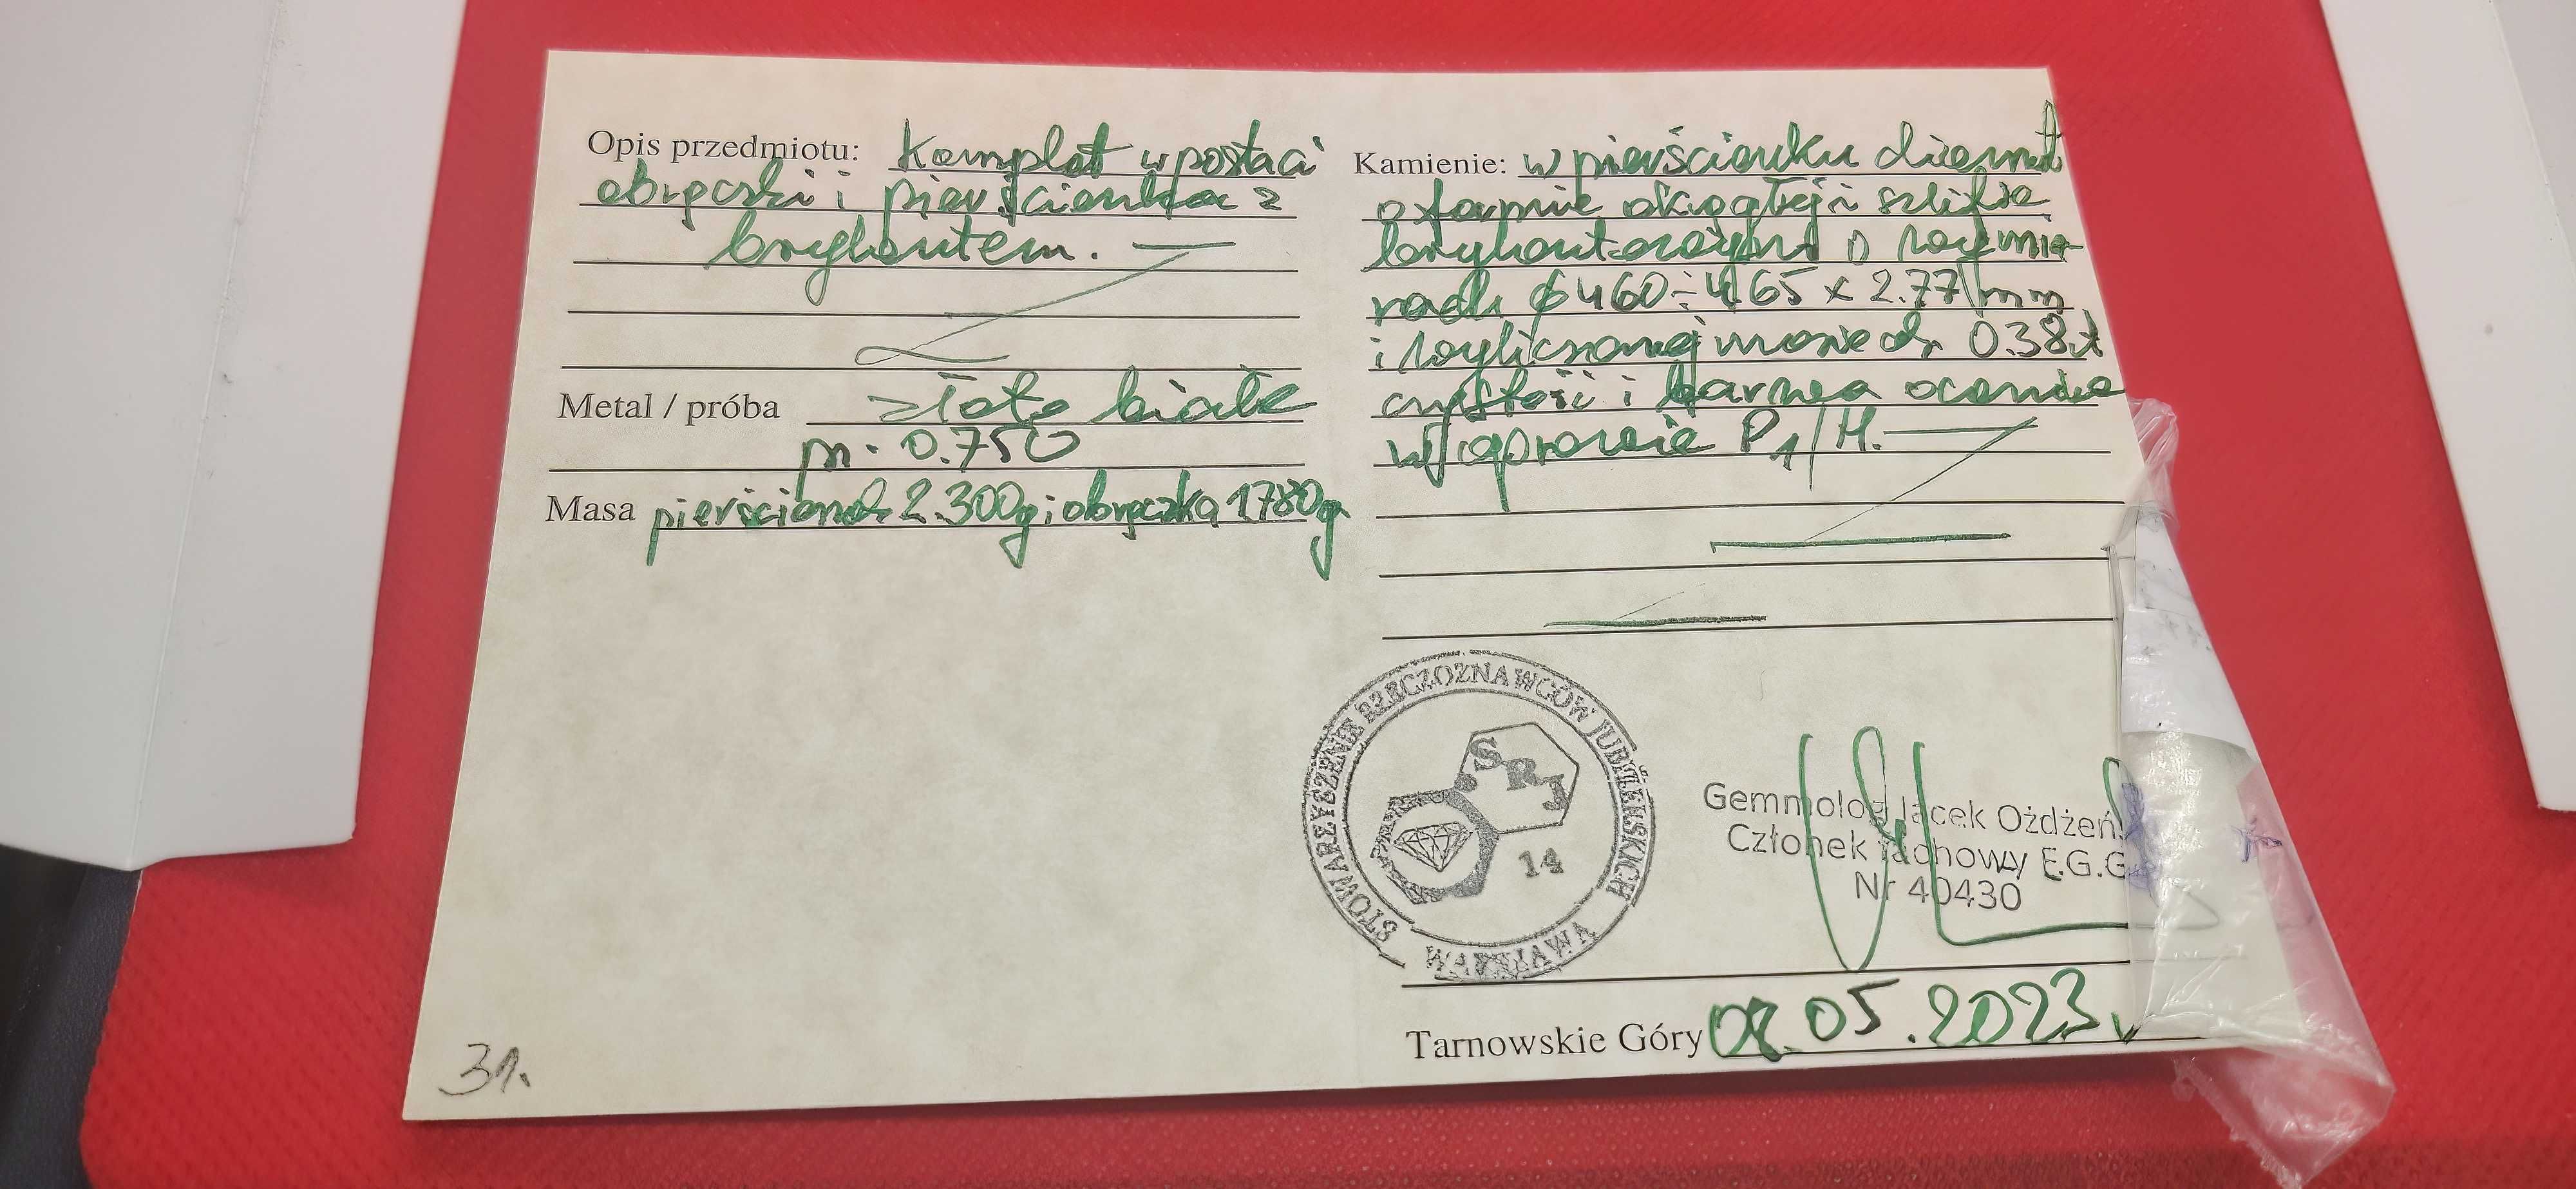 Opis przedmiotu: Komplet w postaci
obrączki i pierścionka z
brylantem.
Metal / próba złoto białe
pr. 0.750
Masa pierścionek 2.300g i obrączka 1780g.
Kamienie: w pierścionku diament
o formie okrągłej i szlifie
brylantowym o wymia-
rach ϕ 460÷4.65 x 2.77 mm
i wyliczonej masie ok. 0.38ct
czystość i barwa ocenione
w oprawie P1/H.
STOWARZYSZENIE RZECZOZNAWCÓW JUBILERSKICH
WARSZAWA
SRJ
14
Gemmolog Jacek Ożdżeń
Członek fachowy E.G.G
Nr 40430
Tarnowskie Góry 08.05.2023
31.